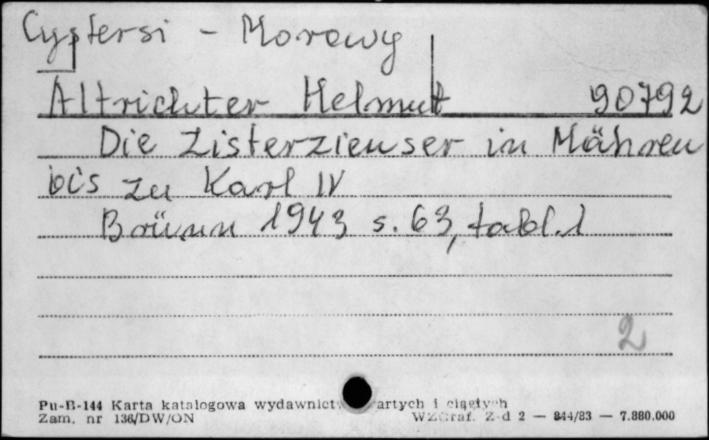 Cystersi - Morawy
Altrichter Helmut 90792
Die Zisterzienser in Mähren
bis zu Karl IV
Brünn 1943 s. 63, tabl. 1
2
Pu-B-144 Karta katalogowa wydawnictw zwartych i ciągłych
Zam. nr 136/DW/ON WZGraf. Z-d 2 — 844/83 — 7.880.000